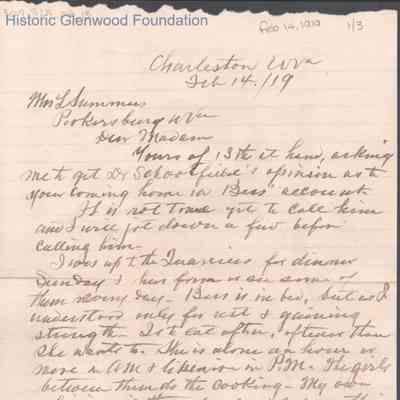 Historic Glenwood Foundation
Feb 14, 1919
1/3
Charleston WVa
Feb 14./19
Mrs L Summers
Parkersburg WVa
Dear Madam
Yours of 13th at hand, asking
me to get Dr Schoolfield's opinion as to
your coming home on Bess' account.
It is not time yet to call him
and I will jot down a few before
calling him.
I was up to the Quarriers for dinner
Sunday & hear from or see some of
them every day - Bess is in bed, but as I
understood only for rest & gaining
strength. Is to eat often, oftener than
she wants to. She is alone an hour or
more in AM & likewise in P.M. The girls
between them do the cooking - My own